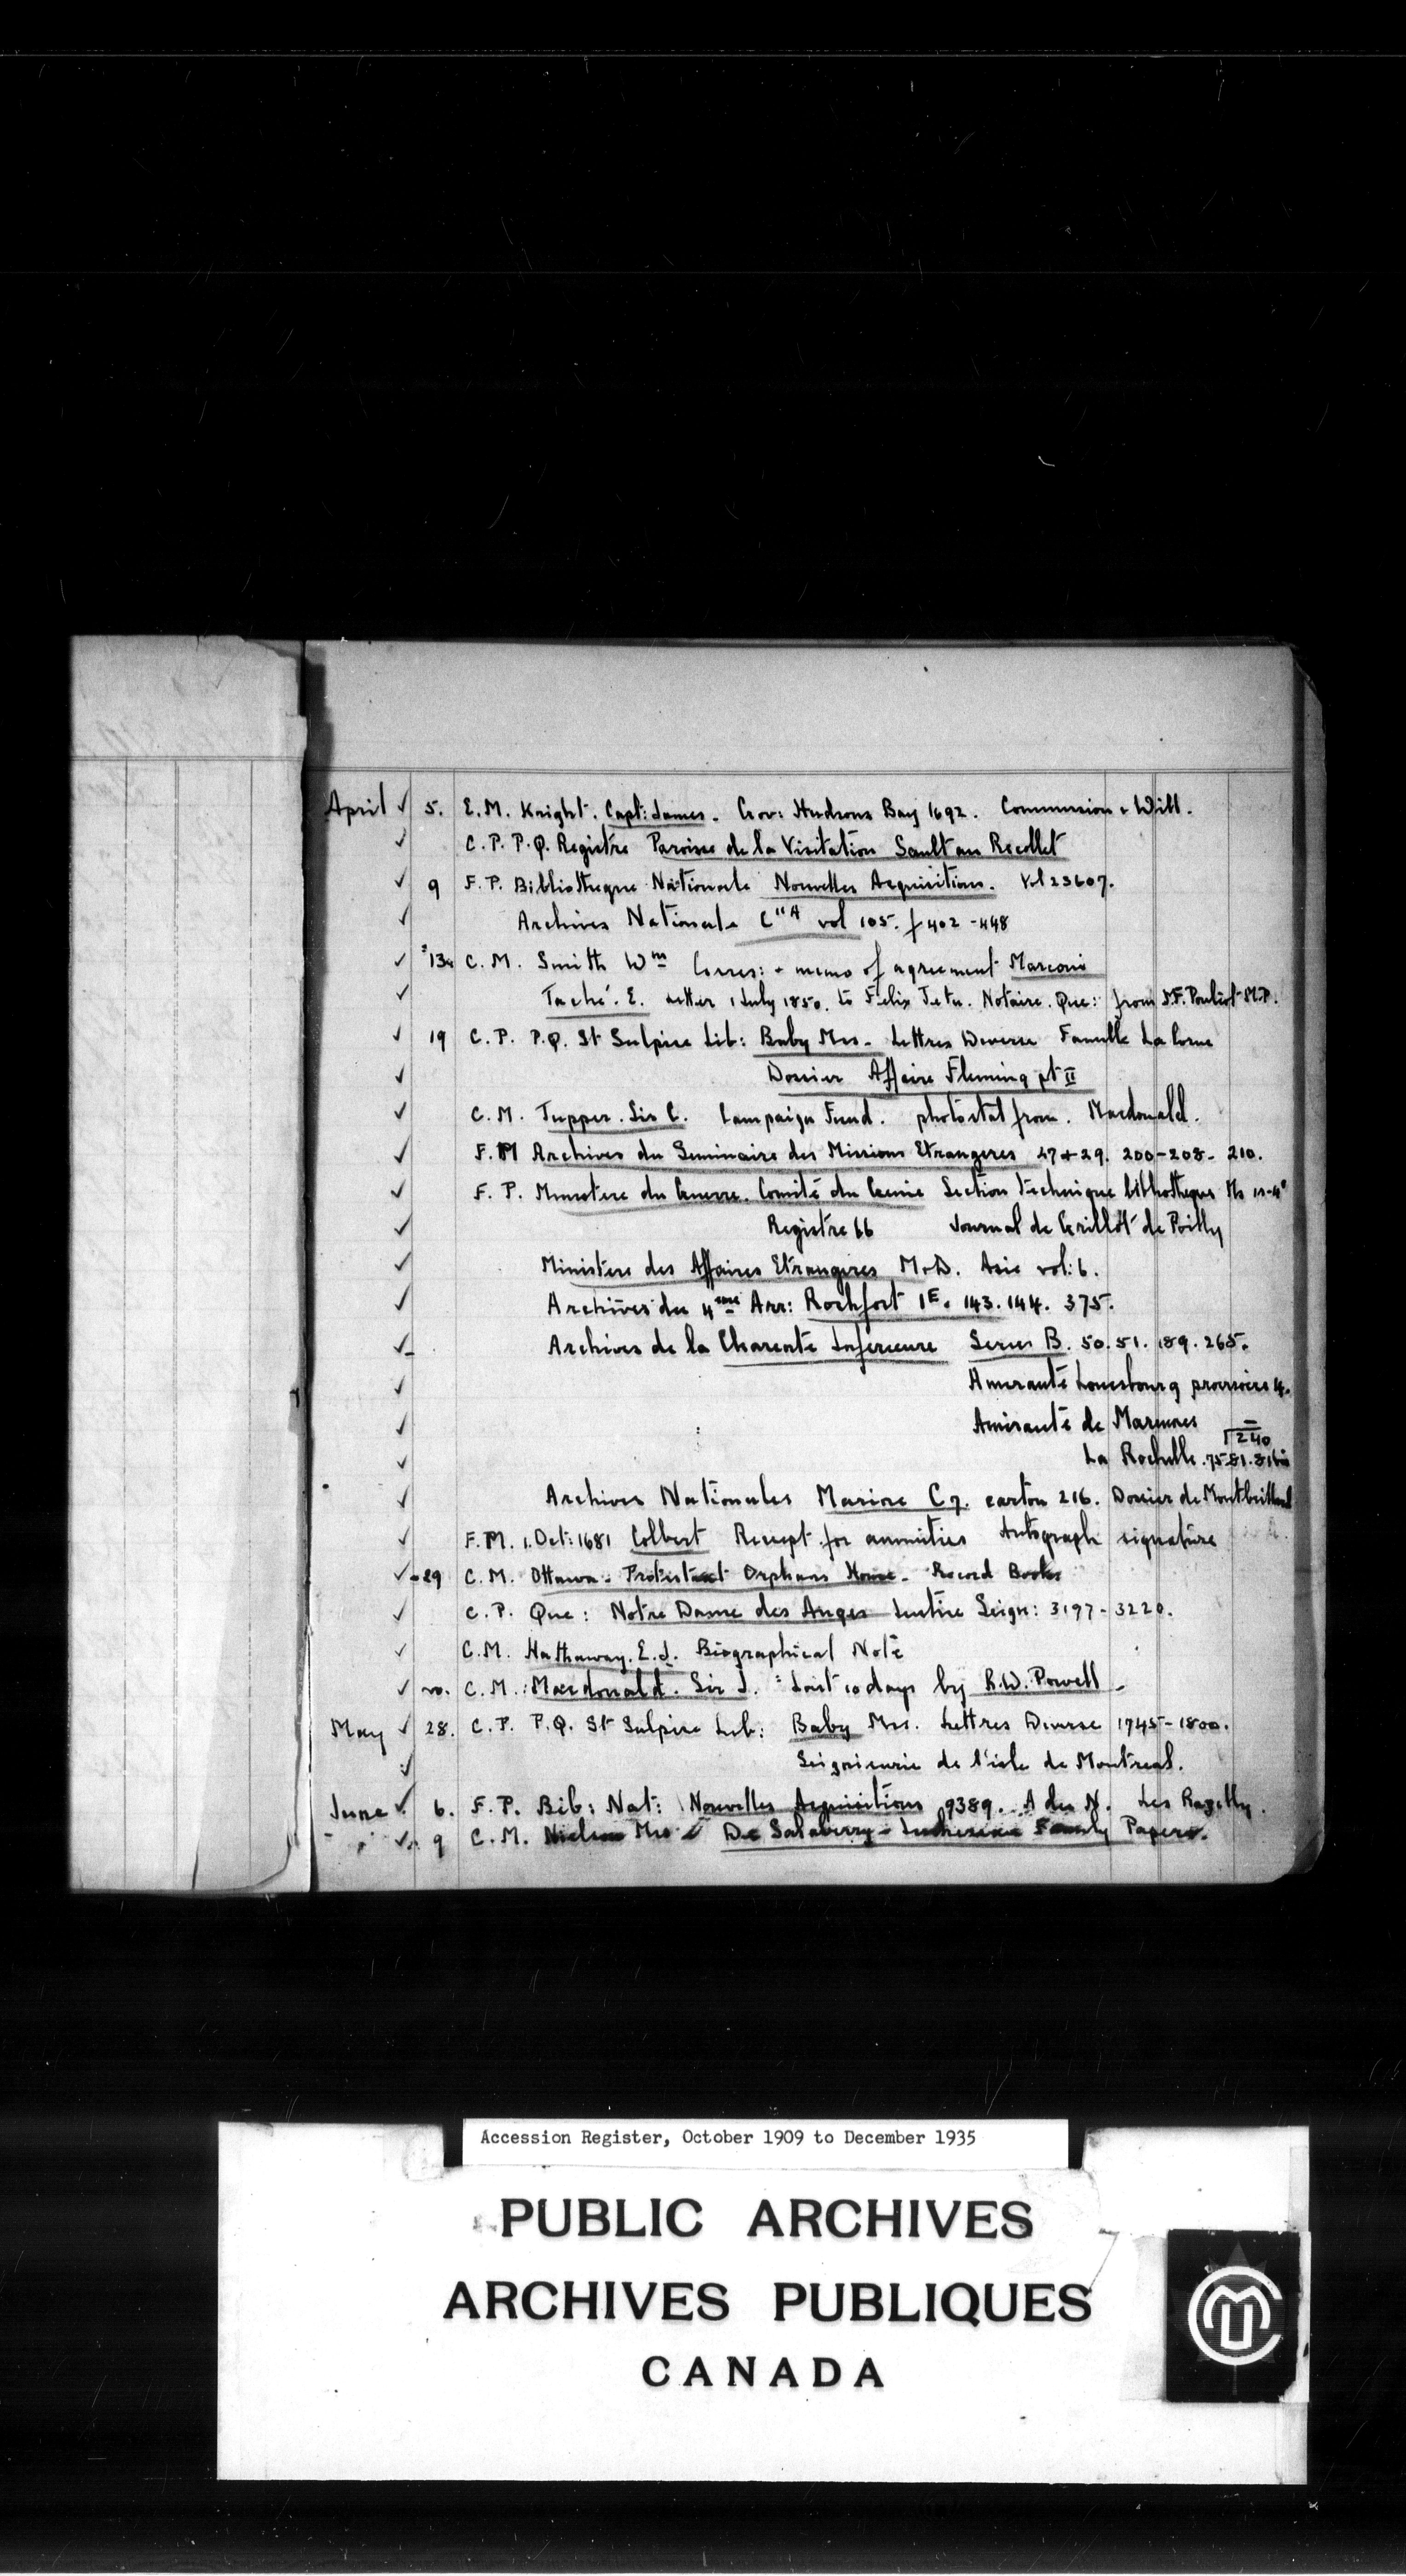 April ✓ 5. E.M. Knight. Capt: James. Gov: Hudsons Bay 1692. Commission & Will.
✓ C.P. P.Q. Registre Paroisse de la Visitation Sault au Recollet
✓ 9 F.P. Bibliotheque Nationale Nouvelles Acquisitions. Vol 23607.
✓ Archives Nationale C11A vol 105. f 402-448
✓ 13 C.M. Smith Wm Corres: & memo of agreement Marconi
✓ Taché. E. letter 1 July 1850. to Felix Tetu. Notaire. Que: from J.F. Pouliot M.P.
✓ 19 C.P. P.Q. St Sulpice Lib: Baby Mss. Lettres Diverse Famille La Corne
✓ Dossier Affaire Fleming pt II
✓ C.M. Tupper. Sir C. Campaign Fund. photostat from. Macdonald.
✓ F.M Archives du Seminaire des Missions Etrangeres 27 & 29. 200-208- 210.
✓ F.P. Ministere du Guerre. Comité du Genie Section technique bibliotheque Ms in-4o
✓ Registre 66 Journal de Grillot de Poilly
✓ Ministere des Affaires Etrangeres M.D. Asie vol: 6.
✓ Archives du 4eme Arr: Rochfort 1E. 143. 144. 375.
✓ Archives de la Charente Inferieure Series B. 50. 51. 189. 265.
✓ Amirauté Louisbourg 4.
✓ Amirauté de Marennes 240
✓ La Rochelle. 75 81. 81bis
✓ Archives Nationales Marine C7. carton 216. Dossier de Montbeillard
✓ F.M. 1. Oct: 1681 Colbert Receipt for annuities Autograph signature
✓ 29 C.M. Ottawa. Protestant Orphans Home. Record Books
✓ C.P. Que: Notre Dame des Anges Seign: 3197-3220.
✓ C.M. Hathaway. E.J. Biographical Note
✓ C.M. Macdonald. Sir J. Last 10 days by R.W. Powell
May ✓ 28. C.P. P.Q. St Sulpice Lib: Baby Mss. Lettres Diverse 1745-1800.
✓ Seignieurie de l'isle de Montreal.
June ✓ 6. F.P. Bib: Nat: Nouvelles Acquisitions 9389. A des N. Les Razilly.
" ✓ 9 C.M. Nielson Mss De Salaberry - Family Papers.
Accession Register, October 1909 to December 1935
PUBLIC ARCHIVES
ARCHIVES PUBLIQUES
CANADA